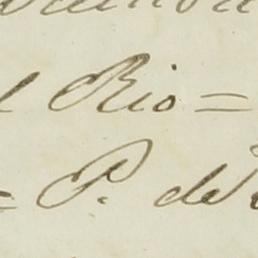 l Rio =
= P. de